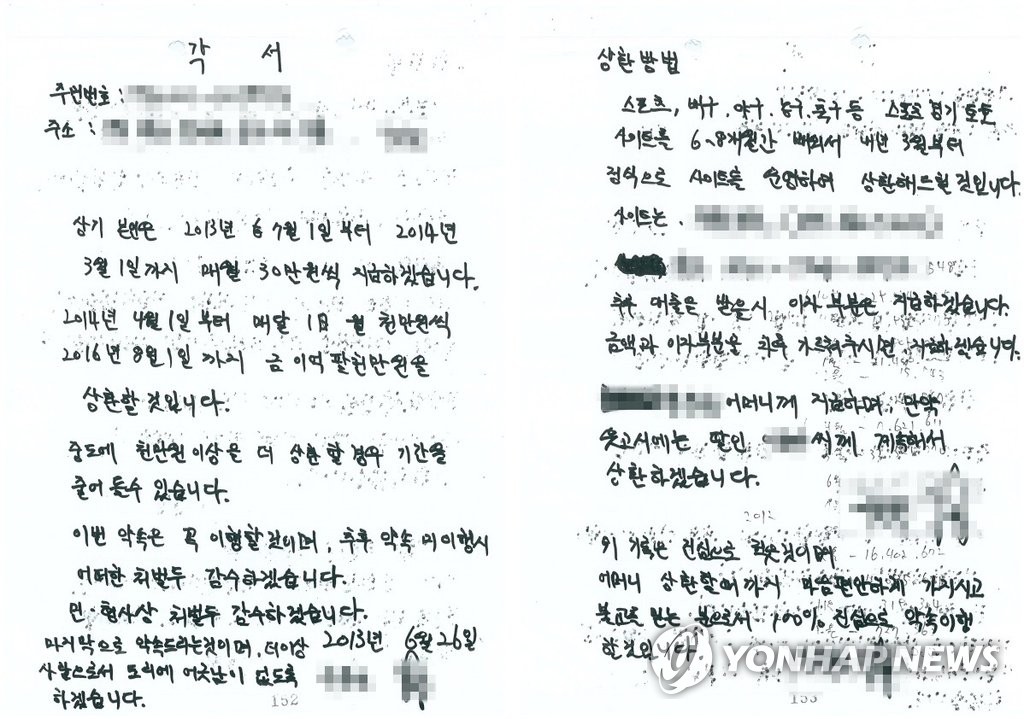 각 서
주민번호 :
주소 :
상기 본인은 2013년 6 7월 1일부터 2014년
3월 1일까지 매월 30만원씩 지급하겠습니다.
2014년 4월 1일부터 매달 1일 월 천만원씩
2016년 8월 1일까지 금 이억팔천만원을
상환할 것입니다.
중도에 천만원이상은 더 상환할 경우 기간을
줄어 둘수 있습니다.
이번 약속은 꼭 이행할것이며, 추후 약속 미이행시
어떠한 처벌두 감수하겠습니다.
민·형사상 처벌두 감수하겠습니다.
마지막으로 약속드리는것이며, 더이상 2013년 6월 26일
사람으로서 도리에 어긋남이 없도록
하겠습니다.
152
상환방법
스포츠, 배구, 야구, 농구, 축구 등 스포츠 경기 토토
사이트를 6~8개월간 배워서 내년 3월부터
정식으로 사이트를 운영하여 상환해드릴것입니다.
사이트는,
548
추후 대출은 받을시 이자 부분은 지급하겠습니다.
금액과 이자부분을 하루 가르쳐주시면 지급하겠습니다.
어머니께 지급하며, 만약
못고시에는 딸인 씨께 계속해서
상환하겠습니다.
2012
위 기록은 진심으로 적은것이며 - 16,402,672
어머니 상환할때까지 마음편안하게 가지시고
불교를 믿는 분으로서 100% 진심으로 약속이행
할것입니다
153
YONHAP NEWS